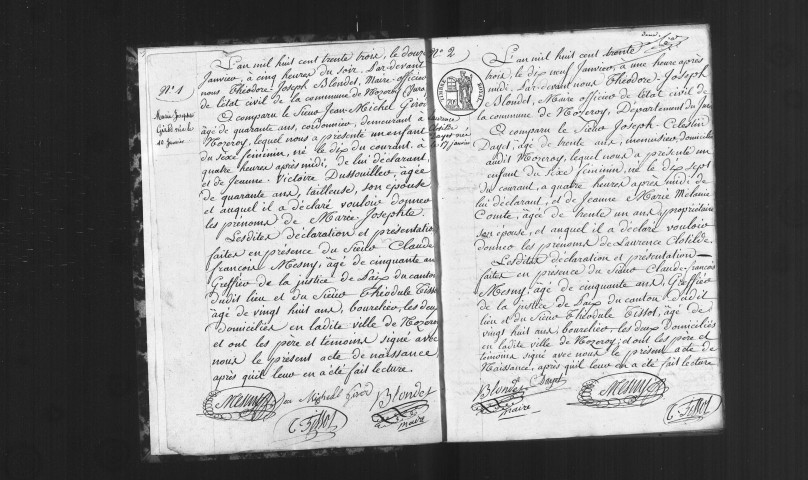 N° 1
Marie Josephte
Girod née le
10 Janvier
L'an mil huit cent trente trois, le douze
Janvier, à cinq heures du soir. Par-devant
nous Théodore-Joseph Blondet, Maire officier
de l'état civil de la commune de Nozeroy (Jura)
A comparu le Sieur Jean-Michel Girod
âgé de quarante ans, cordonnier, demeurant à
Nozeroy, lequel nous a présenté un enfant
du sexe féminin, né le dix du courant à
quatre heures après midi, de lui déclarant,
et de Jeanne-Victoire Dussouillez, âgée
de quarante ans, tailleuse, son épouse
et auquel il a déclaré vouloir donner
les prénoms de Marie-Josephte.
Lesdites déclaration et présentation
faites en présence du Sieur Claude
françois Mesny, âgé de cinquante ans
Greffier de la justice de Paix du canton
dudit lieu et du Sieur Théodule Tissot
âgé de vingt huit ans, bourelier, les deux
Domiciliés en ladite ville de Nozeroy
et ont les père et témoins signé avec
nous le présent acte de naissance,
après qu'il leur en a été fait lecture.
Mesny Jean Michel Girod Blondet
maire
T. Tissot
N° 2
Laurence
Clotilde
Dayet née
le 17 janvier
TIMBRE ROYAL
L'an mil huit cent trente
trois, le dix neuf Janvier, à une heure après
midi. Par-devant nous Théodore-Joseph
Blondet, Maire officier de l'état civil de
la commune de Nozeroy, Département du Jura
A comparu le Sieur Joseph-Célestin
Dayet, âgé de trente ans, menuisier, domicilié
audit Nozeroy, lequel nous a présenté un
enfant du sexe féminin, né le dix sept
du courant, à quatre heures après midi de
lui déclarant, et de Jeanne Marie Mélanie
Comte, âgée de trente un ans, propriétaire
son épouse, et auquel il a déclaré vouloir
donner les prénoms de Laurence Clotilde.
Lesdites déclaration et présentation
faites en présence du Sieur Claude-françois
Mesny, âgé de cinquante ans, Greffier
de la justice de Paix du canton dudit
lieu et du Sieur Théodule Tissot, âgé de
vingt huit ans, bourelier, les deux Domiciliés
en ladite ville de Nozeroy, et ont les père et
témoins signé avec nous le présent acte de
Naissance, après qu'il leur en a été fait lecture
Blondet Dayet Mesny
maire
T. Tissot